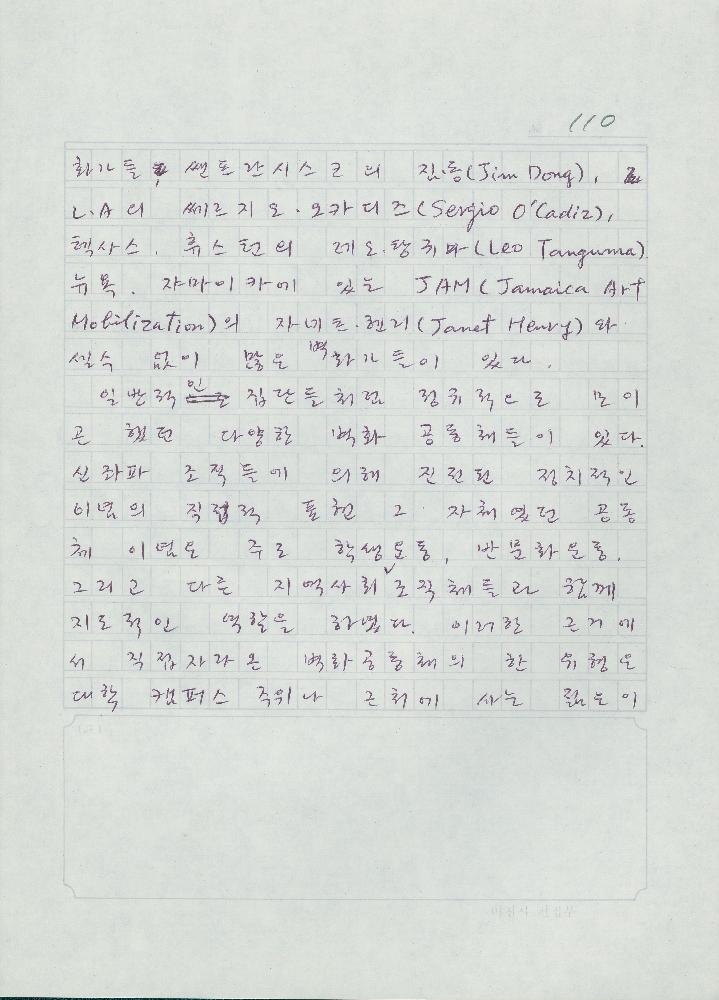 110
화가들, 쌘프란시스코의 짐·동(Jim Dong),
L.A의 쎄르지오·오카디즈(Sergio O'Cadiz),
텍사스. 휴스턴의 레오·탕귀마(Leo Tanguma)
뉴욕. 쟈마이카에 있는 JAM(Jamaica Art
Mobilization)의 자네트·헨리(Janet Henry)와
셀수 없이 많은 벽화가들이 있다.
일반적인 집단들처럼 정치적으로 모이
곤 했던 다양한 벽화 공동체들이 있다.
신좌파 조직들에 의해 진전된 정치적인
이념의 직접적 표현 그 자체였던 공동
체 이념도 주로 학생운동, 반문화운동,
그리고 다른 지역사회 조직체들과 함께
지도적인 역할을 하였다. 이러한 근거에
서 직접자라온 벽화공동체의 한 유형은
대학 캠퍼스 주위나 근처에 사는 젊은이